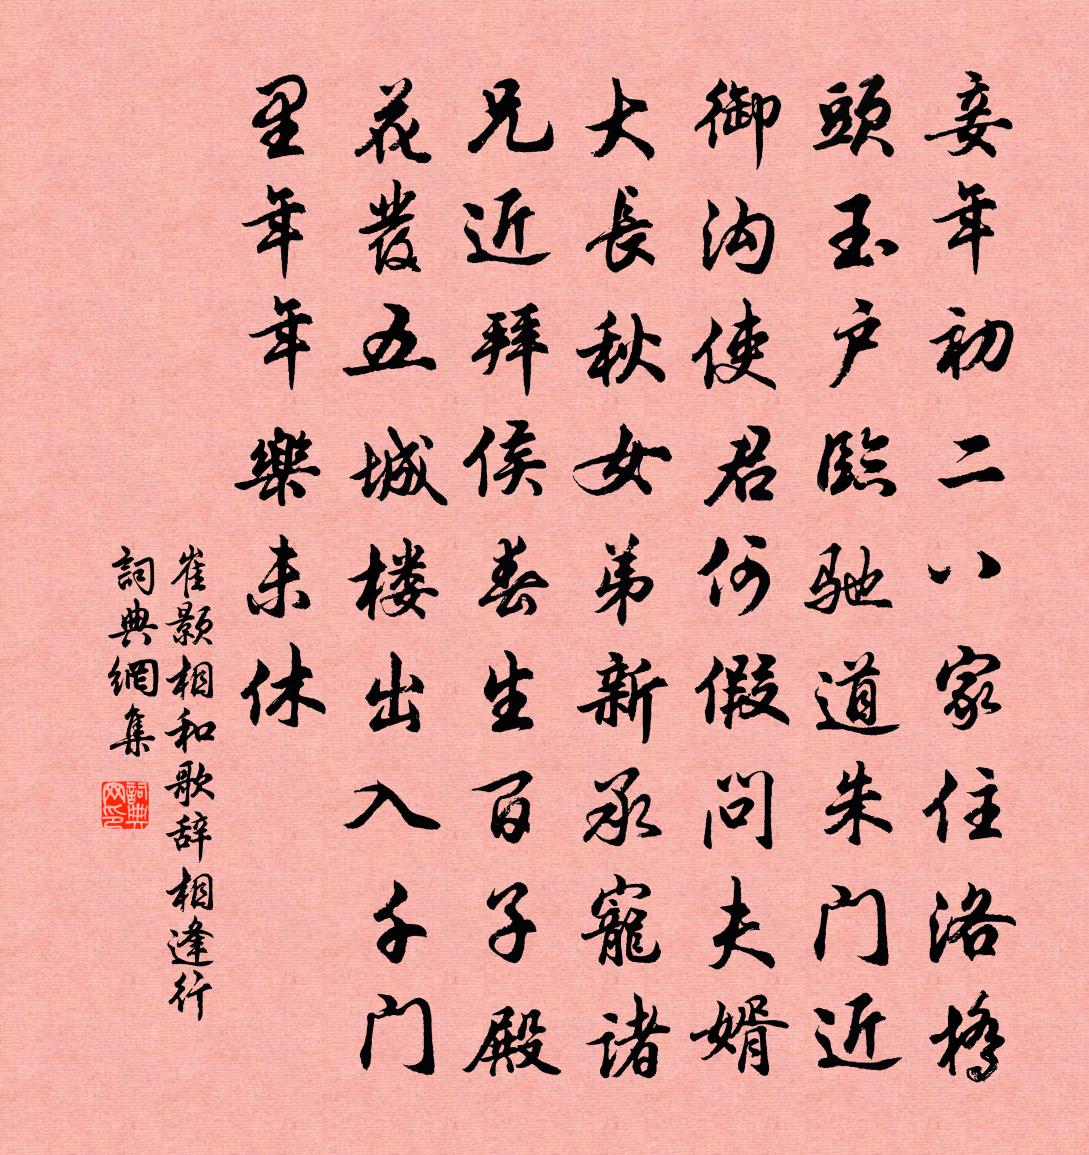 妾年初二八家住洛橋
頭玉户臨驰道朱门近
御沟使君何假問夫婿
大長秋女弟新承寵諸
兄近拜侯春生百子殿
花發五城楼出入千门
里年年樂未休
崔颢相和歌辞相逢行
詞典網集
詞典网印